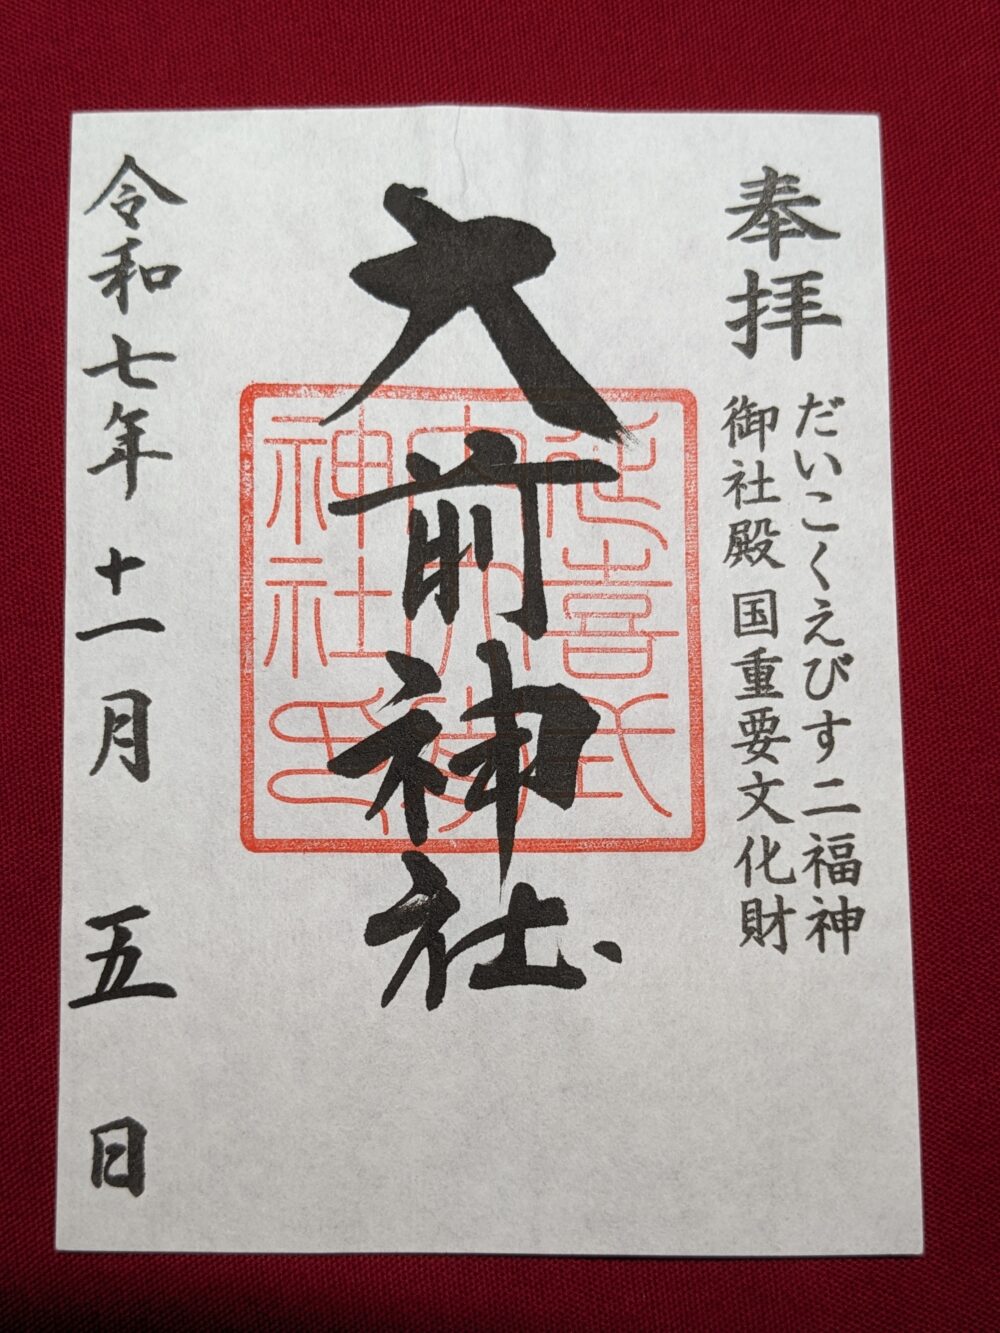 奉拝
だいこくえびす二福神
御社殿 国重要文化財
大前神社
延喜式
内大前
神社印
令和七年十一月五日